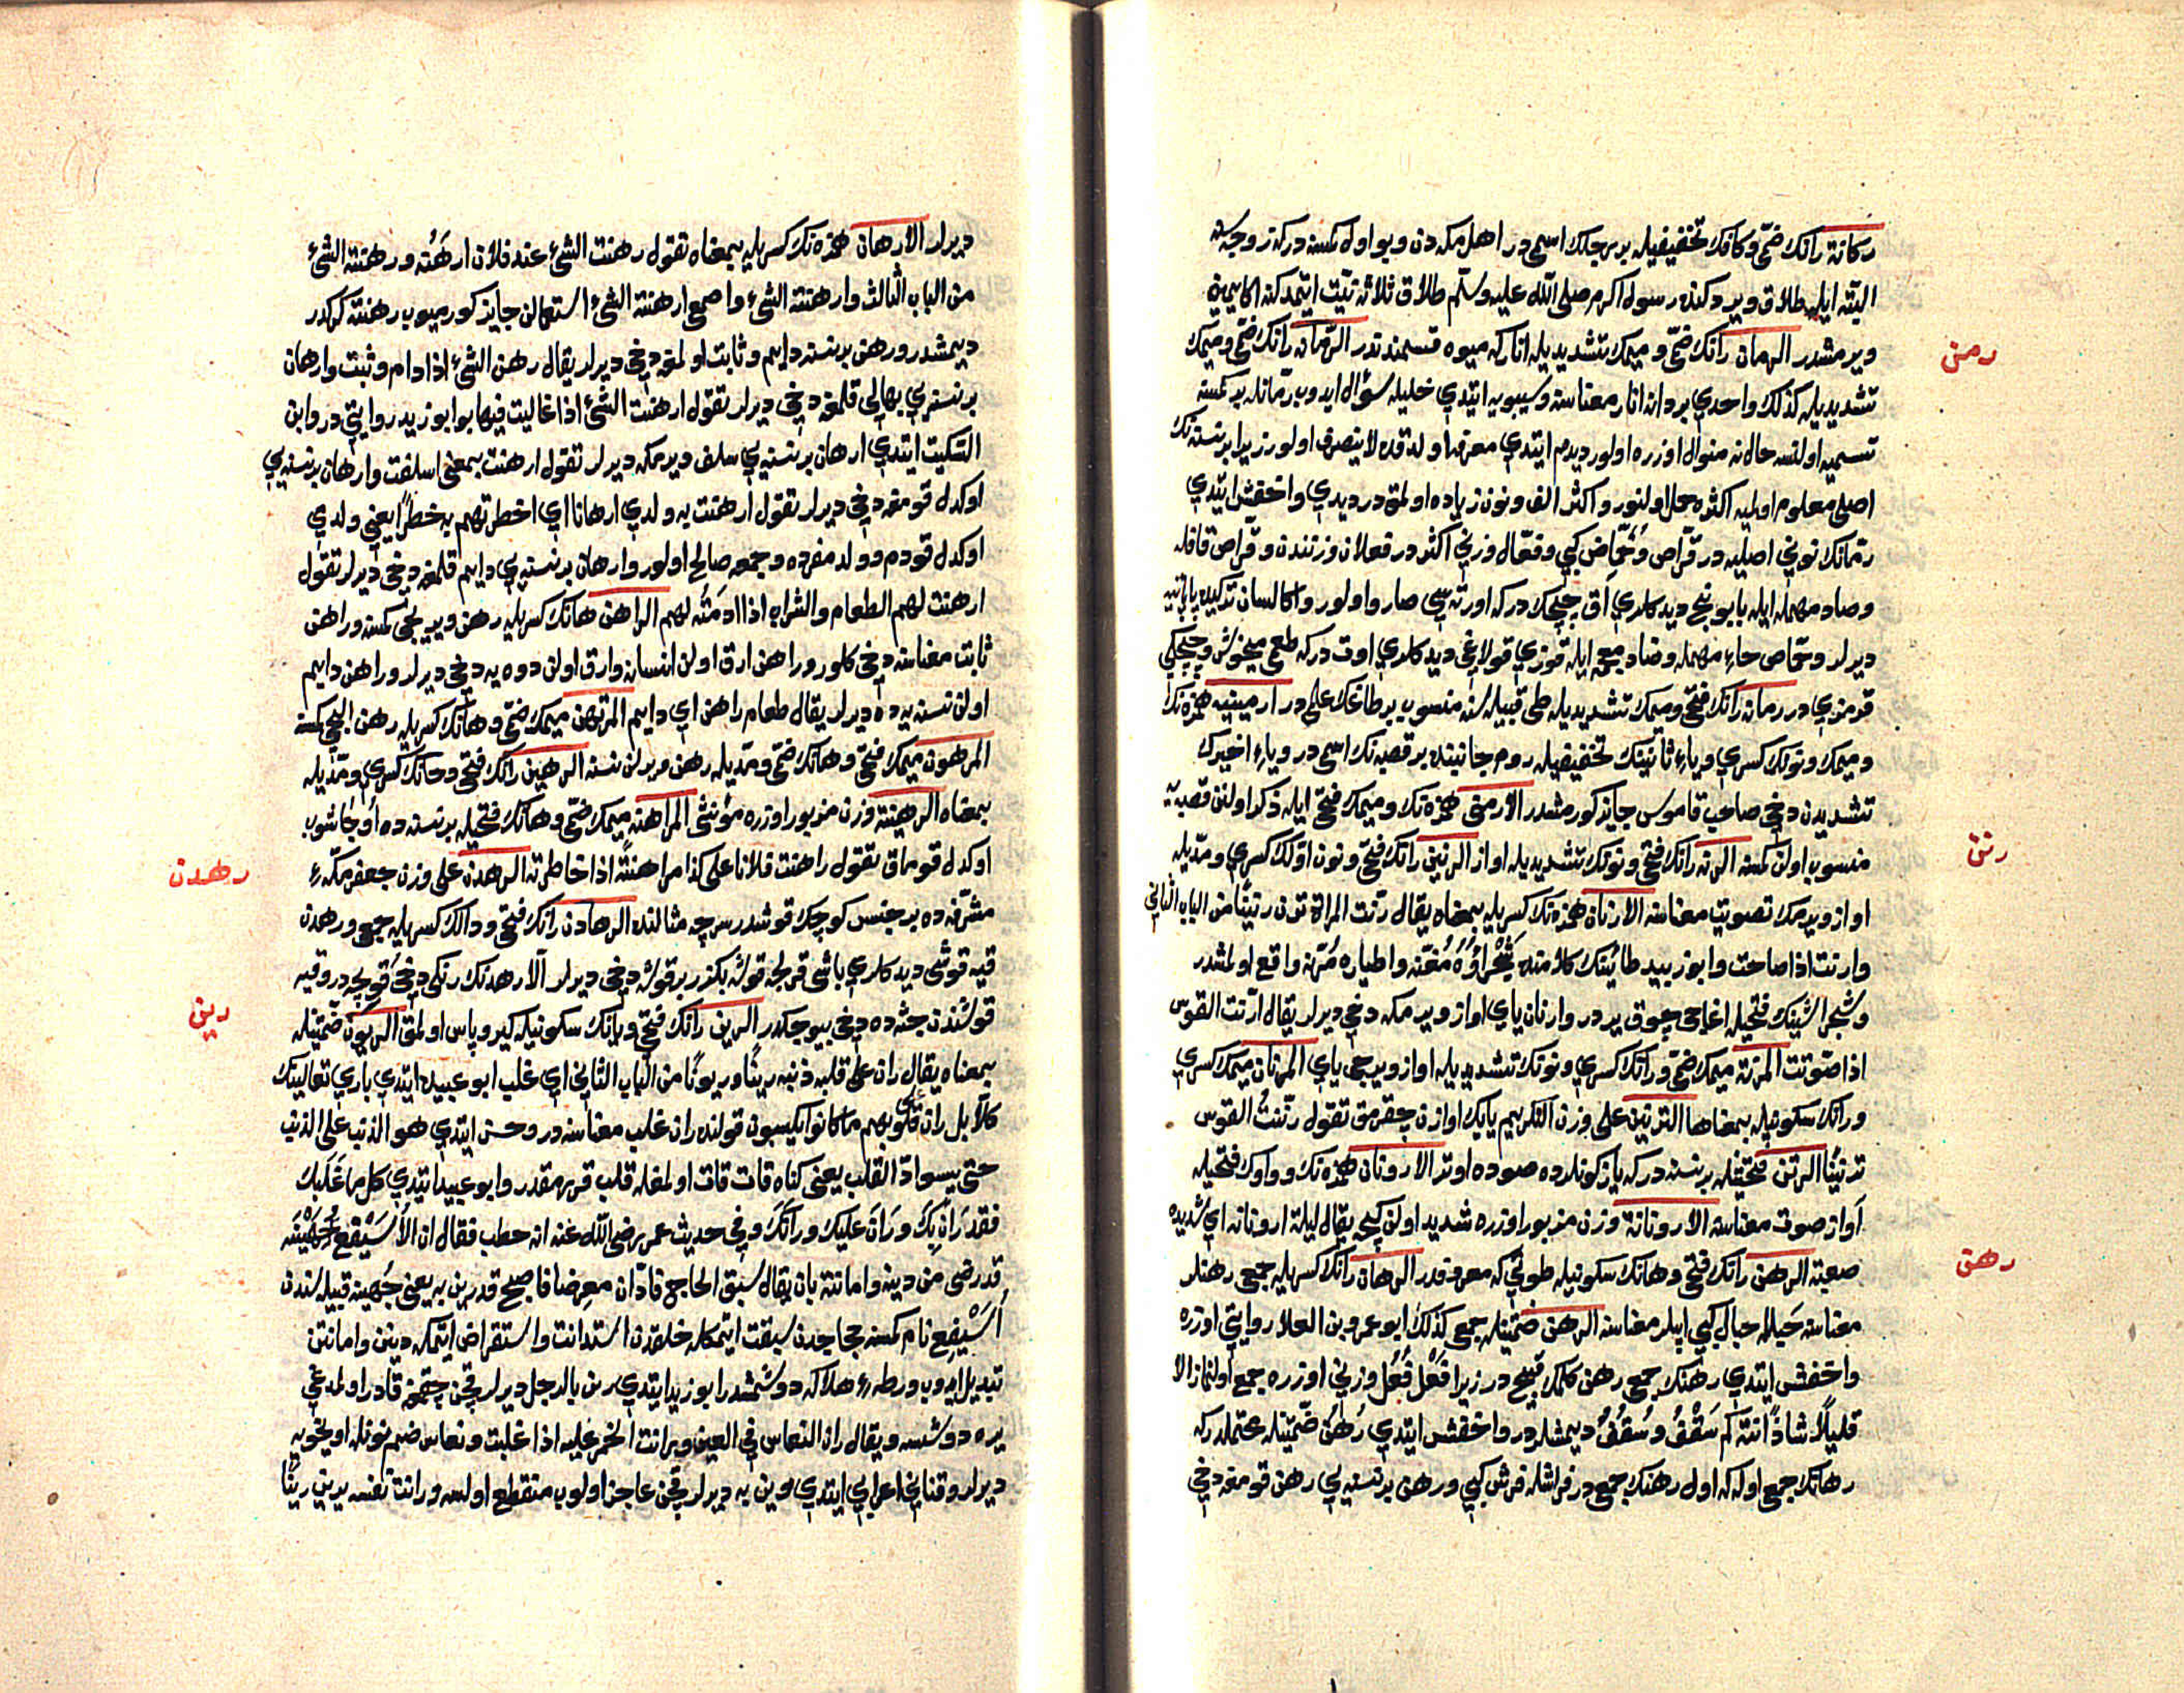 ركانة رانك ضمّي وكافك تخفيفيله بر رجلك اسمى در اهل مكه دن وبو اول كمسنه دركه زوجه سنه
البتّه ايله طلاق ويردكنده رسول اكرم صلى الله عليه وسلم طلاق ثلاثه نيّت ايتمدكنه اكا يمين
ويرمشدر الرمان رانك ضمّي وميمك تشديديله انار كه ميوه قسمندندر الرمانه رانك ضمّي وميمك
تشديديله كذلك واحدي بر دانه انار معناسنه وسيبويه ايتدي خليله سؤال ايدوب رمانله بر كمسنه
تسميه اولنسه حال نه منوال اوزره اولور ديدم ايتدي معرفه اولدقده لا ينصرف اولور زيرا بر نسنه نك
اصلى معلوم اولميه اكثره حمل اولنور واكثر الف ونون زياده اولمق در ديدي واخفش ايتدي
رمانك نوني اصليه در قرّاص وحُمّاض كبي وفعّال وزني اكثر در فعلان وزنندن وقرّاص قافله
وصاد مهمله ايله بابونج ديدكلري آق چيچك دركه اورته سي صارو اولور واكا لسان تركيده پاپاتيه
ديرلر وحمّاض حاء مهمله وضاد معجمه ايله قوزي قولاغي ديدكلري اوت دركه طعمى ميخوش وچيچكي
قرمزي در رمان رانك فتحي وميمك تشديديله طى قبيله سنه منسوب بر طاغك علمى در ارمينيه همزه نك
وميمك ونونك كسري وياء ثانيه نك تخفيفيله روم جانبنده بر قصبه نك اسمى در وياء اخيرك
تشديدن دخى صاحب قاموس جايز كورمشدر الارمنى همزه نك وميمك فتحى ايله ذكر اولنن قصبه يه
منسوب اولن كمسنه الرنه رانك فتحي ونونك تشديديله اواز الرنين رانك فتحي ونون اولك كسري ومدّيله
اواز ويرمك تصويت معناسنه الارنان همزه نك كسريله بمعناه يقال رنت المراة ترن رنينا من الباب الثاني
وارنت اذا صاحت وابو زبيد طائينك كلامنده شَجْراؤُهُ مُغِنّه واطياره مُرِنّه واقع اولمشدر
وشجرا شينك فتحيله اغاجى چوق ير در وارنان ياي اواز ويرمكه دخي ديرلر يقال ارنت القوس
اذا صوّتت المرنه ميمك ضمّي ورانك كسري ونونك تشديديله اواز ويرجى ياي المرنان ميمك كسري
ورانك سكونيله بمعناها الترنين على وزن التكريم يايك اوازن چقرمق تقول رنّنتُ القوس
ترنينًا الرنن فتحتينله بر نسنه دركه ياز كونلرده صوده اوتر الارونان همزه نك وواوك فتحيله
آواز صوت معناسنه الارونانة وزن مزبور اوزره شديد اولن كيجه يقال ليلة ارونانه اي شديده
صعبة الرهن رانك فتحي وهانك سكونيله طوتي كه معروفدر الرهان رانك كسريله جمعى رهنلر
معناسنه حبله حبال كبي ايپلر معناسنه الرهن ضمتينله جمعى كذلك ابو عمرو بن العلا روايتي اوزره
واخفش ايتدي رهنك جمعى رهن كلمك قبيح در زيرا فَعْل فُعُل وزني اوزره جمع اولنماز الا
قليلًا شاذًا انته كم سَقْفُ وسُقُفُ ديمشلردر واخفش ايتدي رُهُن ضمتينله محتملدر كه
رهانك جمعى اوله كه اول رهنك جمعى در فراشله فرش كبي ورهن بر نسنه يي رهن قومغه دخي
رمن
رنن
رهن
ديرلر الارهان همزه نك كسريله بمعناه تقول رهنت الشئ عند فلان ارهَنُه ورهنته الشئ
من الباب الثالث وارهنته الشئ واصمعى ارهنته الشئ استعمالن جايز كورميوب رهنته كركدر
ديمشدر ورهن بر نسنه دايم وثابت اولمغه دخي ديرلر يقال رهن الشئ اذا دام وثبت وارهان
بر نسنه يي بهالي قلمغه دخي ديرلر تقول ارهنت الشئ اذا غاليت فيها بو ابو زيد روايتي در وابن
السّكيت ايتدي ارهان بر نسنه يي سلف ويرمكه ديرلر تقول ارهنت بمعنى اسلفت وارهان بر نسنه يي
اوكدل قومغه دخي ديرلر تقول ارهنت به ولدي ارهانا اي اخطرتهم به خطرًا يعني ولدي
اوكدل قودم وولد مفرده وجمعه صالح اولور وارهان بر نسنه يي دايم قلمغه دخى ديرلر تقول
ارهنت لهم الطعام والشراب اذا ادمتُه لهم الراهن هانك كسريله رهن ويريجى كمسنه وراهن
ثابت معناسنه دخي كلور وراهن ارق اولن انسانه وارق اولن دوه يه دخي ديرلر وراهن دايم
اولن نسنه يه ده ديرلر يقال طعام راهن اي دايم المرتهن ميمك ضمّي وهانك كسريله رهن اليجى كمسنه
المرهون ميمك فتحي وهانك ضمّي ومدّيله رهن ويرلن نسنه الرهين رانك فتحي وهانك كسري ومدّيله
بمعناه الرهينة وزن مزبور اوزره مؤنثى المراهنه ميمك ضمّي وهانك فتحيله بر نسنه ده اوجاشوب
اوكدل قومق تقول راهنت فلانا على كذا مراهنةً اذا خاطرته الرهدن على وزن جعفر مكّهء
مشرّفه ده بر جنس كوچك قوشدر سرچه مثالنده الرهادن رانك فتحي ودالك كسريله جمعى ورهدن
قبه قوشى ديدكلري باشى قزلجه قوشه بكزر بر قوشه دخي ديرلر الا رهدنك رنكى دخي قويجه در وقبه
قوشندن جثه ده دخي بيوجكدر الرين رانك فتحي ويانك سكونيله كير وپاس اولمق الريون ضمتينله
بمعناه يقال ران على قلبه ذنبه رينًا وريونًا من الباب الثاني اي غلب ابو عبيده ايتدي باري تعالينك
كلا بل ران على قلوبهم ما كانوا يكسبون قولنده ران غلب معناسنه در وحسن ايتدي هو الذنب على الذنب
حتى يسوادّ القلب يعني كناه قات قات اولمغله قلب قرهمقدر وابو عبيد ايتدي كل ما غَلَبك
فقد رَانَ بِكَ ورَانَ عليك ورانَكَ وفي حديث عمر رضي الله عنه انه خطب فقال ان الأُسَيْفِعَ جُهَيْنَه
قد رضى من دينه وامانته بان يقال سبق الحاج فادّان معرضا فاصبح قد رين به يعنى جُهينه قبيله سندن
اُسَيْفِع نام كمسنه حجاجدن سبقت ايتمكله خلقدن استدانت واستقراض ايتمكه دينن وامانتن
تبديل ايدوب ورطهء هلاكه دوشمشدر ابو زيد ايتدي رين بالرجل ديرلر قچن چقمغه قادر اولمدغي
يره دوشسه ويقال ران النعاس في العين ورانت الخمر عليه اذا غلبت ونعاس ضم نونله اويخويه
ديرلر وقناني اعرابي ايتدي رين به ديرلر قچن عاجز اولوب منقطع اولسه ورانت نفسه يرين رينًا
رهدن
رين